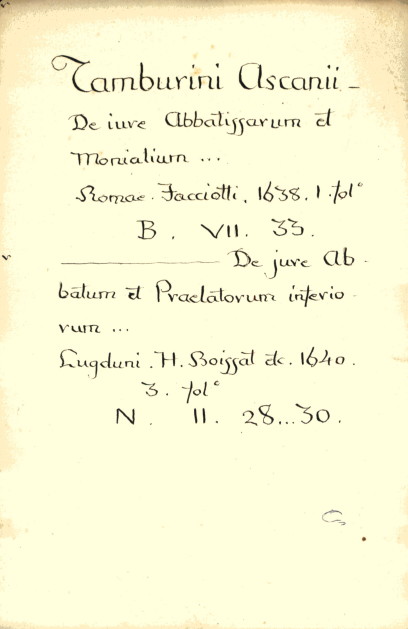 Tamburini Ascanii –
De iure Abbatissarum et
Monialium ...
Romae. Facciotti, 1638. 1. fol°
B. VII. 33.
———— De jure Ab-
batum et Praelatorum inferio-
rum ...
Lugduni. H. Boissat etc. 1640.
3. fol°
N. II. 28...30.